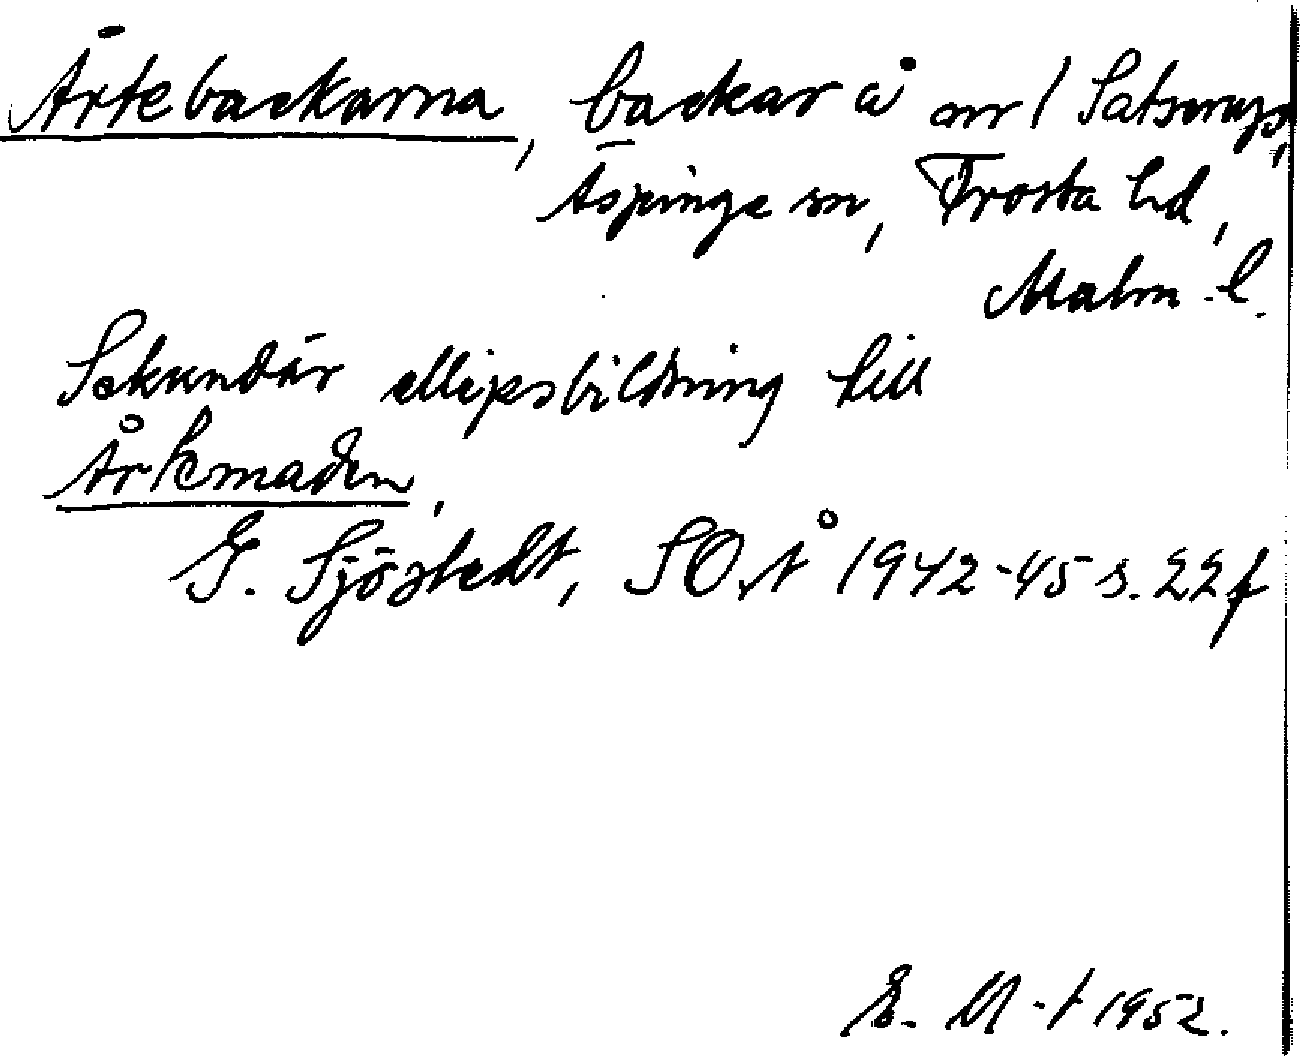 Årtebackarna, backar å nr 1 Satserup,
Äspinge sn, Frosta hd,
Malm. l.
Sekundär ellipsbildning till
Årtemaden,
G. Sjöstedt, SOÅ 1942-45 s. 22 f
E. M-t 1952.